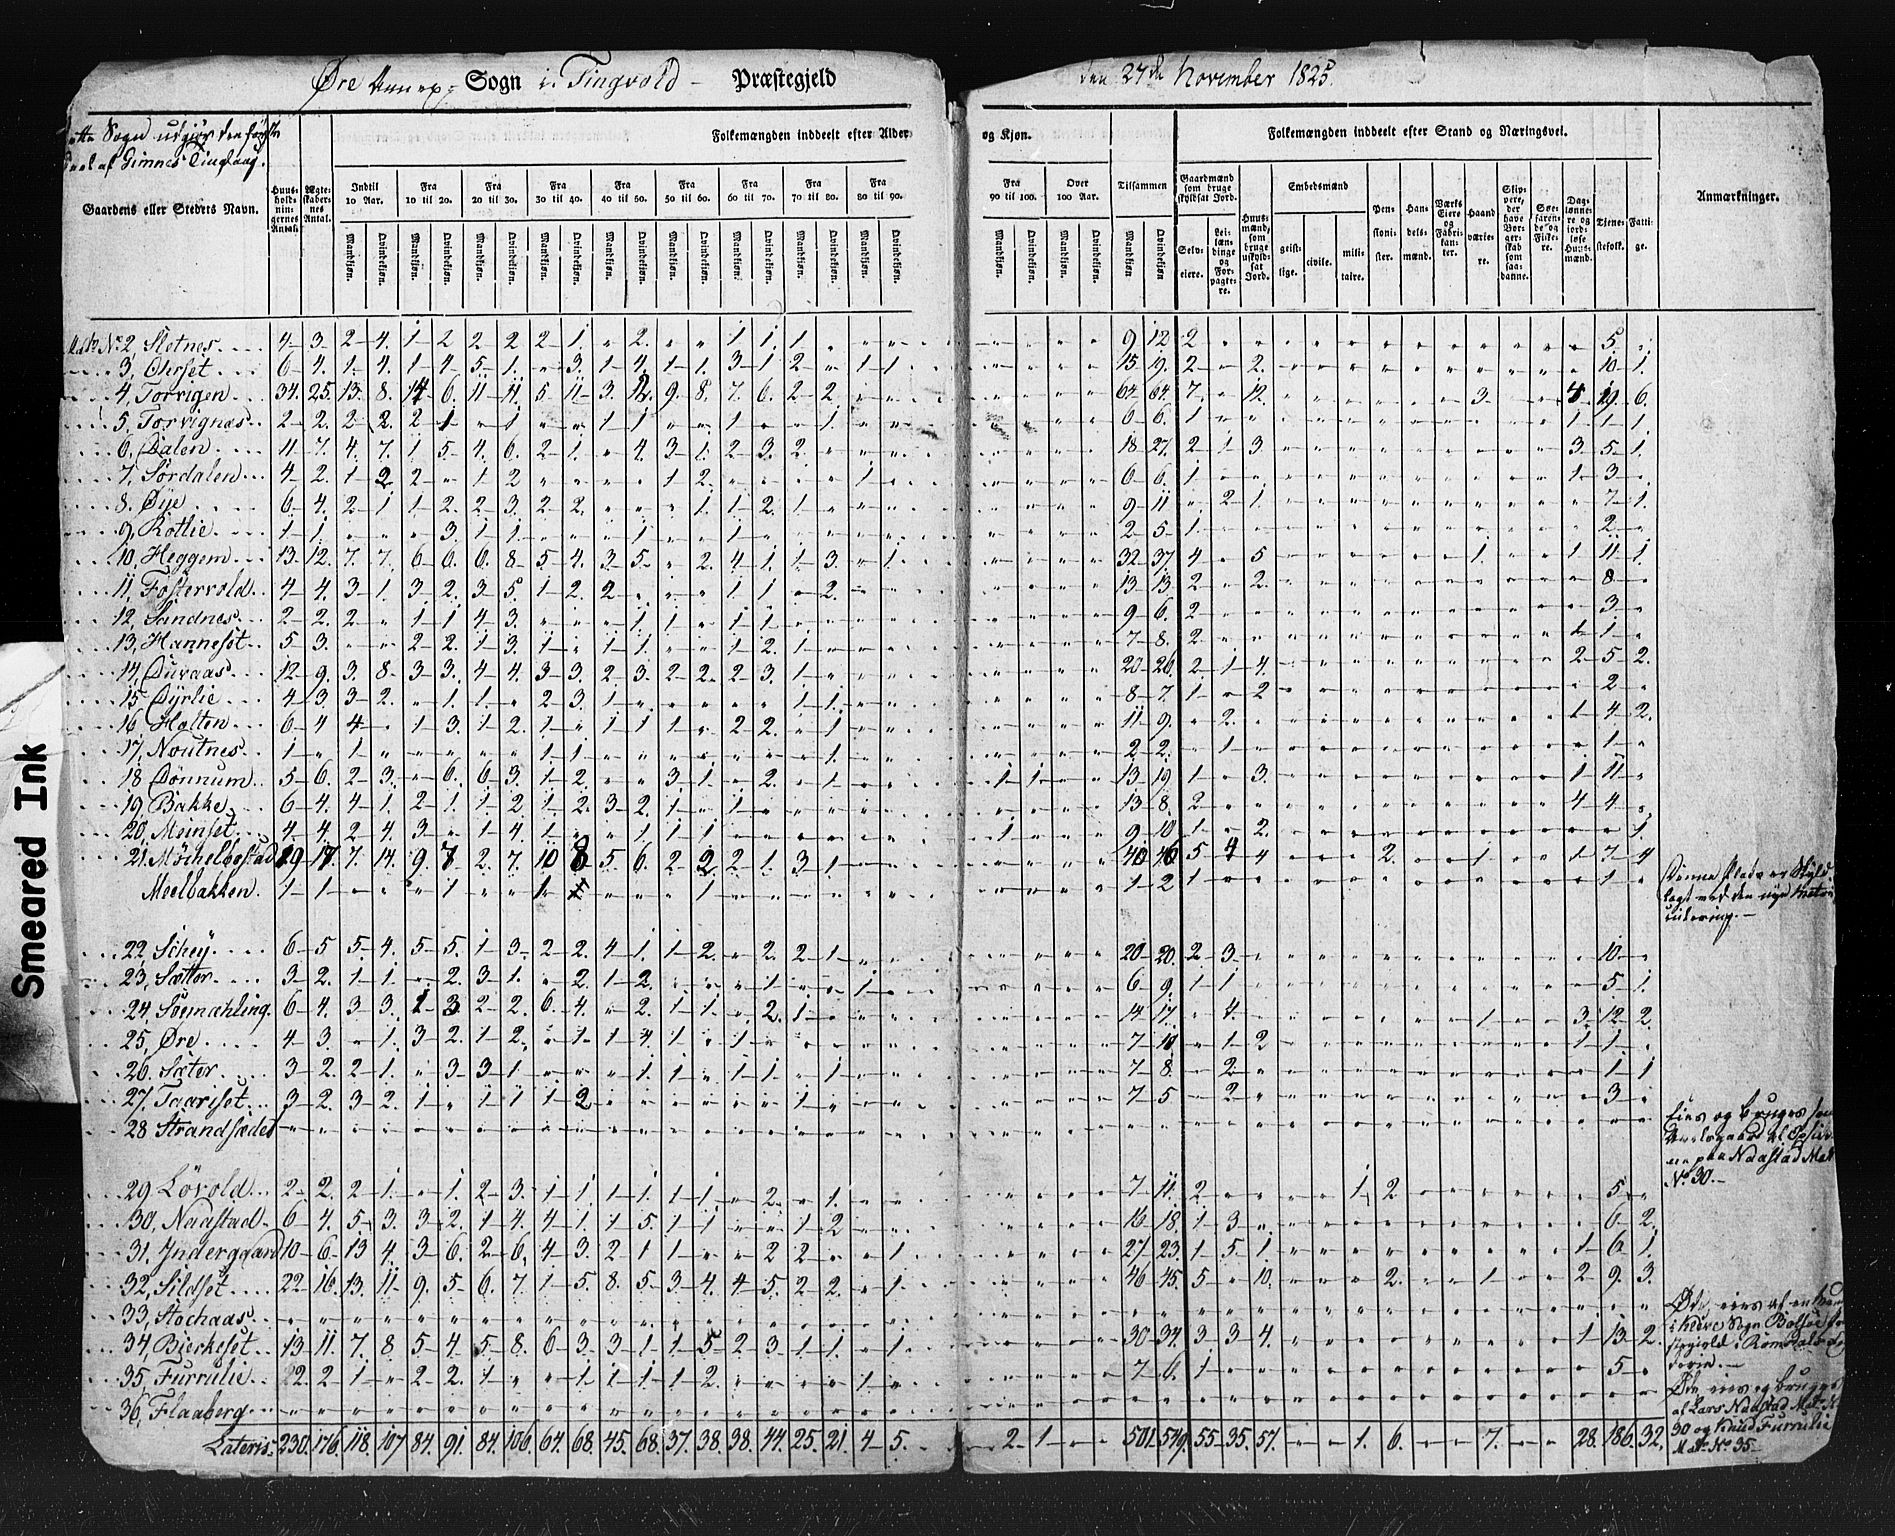 Øre Annex Sogn i Tingvold Præstegjeld
den 27de November 1825
Dette Sogn udgiør den første
Deel af Gimnes Tinglaug.
Gaardens eller Stedets Navn.
Huus-holdnin-gernes Antal.
Ægte-skaber-nes Antal.
Folkemængden inddeelt efter Alder og Kjøn.
Indtil 10 Aar. Fra 10 til 20. Fra 20 til 30. Fra 30 til 40. Fra 40 til 50. Fra 50 til 60. Fra 60 til 70. Fra 70 til 80. Fra 80 til 90. Fra 90 til 100. Over 100 Aar. Tilsammen
Mandkjøn. Qvindekjøn.
Folkemængden inddeelt efter Stand og Næringsvei.
Gaardmænd som bruge skyldsat Jord.
Selv-eiere. Lei-læn-dinge og For-pagte-re.
Huus-mænd, som bruge uskyld-sat Jord.
Embedsmænd
geist-lige. civile. mili-taire.
Pen-sioni-ster. Han-dels-mænd. Værks Eiere og Fabri-kan-ter. Haand-værke-re. Skip-pere, der have Bor-gerskab som saa-danne. Søe-faren-de og Fiske-re. Dag-lønne-re og jord-løse Huus-mænd. Tjene-stefolk. Fatti-ge.
Anmærkninger.
Mat. No. 2, Sletnes 4 3 2 4 1 2 2 2 2 1 " 2 " " 1 1 1 " " " " " " " 9 12 2 5
3, Ohrset 6 4 1 4 1 4 5 1 " 3 1 4 1 1 3 1 2 " 1 1 15 19 2 " 2 10 1
4, Torvigen 34 25 13 8 14 6 11 11 5 11 3 12 9 8 7 6 2 2 64 64 7 " 12 3 4 19 6
5, Torvignæs 2 2 2 2 2 1 " 1 " " 1 1 " " 1 " " 1 6 6 1 1 1 1
6, Dalen 11 7 4 7 1 5 4 6 2 1 " 4 3 1 2 3 2 18 27 2 1 3 3 5 1
7, Sørdalen 4 2 1 2 2 " 1 2 " " " " 1 2 " " " " 1 6 6 1 1 3
8, Øye 6 4 2 1 1 2 2 3 2 2 " " " 1 1 2 1 9 11 " 2 1 7 1
9, Rotlie 1 1 " " " 3 1 1 " " " 1 " " 1 2 5 1 2
10, Heggem 13 12 7 7 6 6 6 8 5 4 3 5 " 2 4 1 1 3 " 1 32 37 4 " 5 1 1 11 1
11, Fostervold 4 4 3 1 3 2 3 5 1 2 2 " " " 1 1 " 2 13 13 2 " 2 8
12, Sandnes 2 2 2 " 1 1 4 3 " " " 1 1 " 1 1 9 6 2 3
13, Hanneset 5 3 " " 2 2 1 3 1 " 1 1 " " 1 2 1 7 8 2 1 1
14, Duvaas 12 9 3 8 3 3 4 4 3 3 2 3 2 2 2 3 1 20 26 2 1 4 2 5 2
15, Dyrlie 4 3 3 2 " 1 1 " 2 3 1 " " " " " 1 1 8 7 1 " 2 2
16, Holten 6 4 4 " 1 3 1 2 1 " 1 1 1 " 2 2 " 1 11 9 " 2 1 4 2
17, Noutnes 1 " 1 " " " " " 1 1 2 2 " 1 1
18 Dønnum 5 6 2 3 " 6 6 3 1 2 " " 3 1 " 2 " 1 " " 1 1 13 19 1 " 3 1 11
19, Bakke 6 4 4 1 2 1 1 2 1 2 3 2 1 " 1 13 8 2 4 4
20, Meinset 4 4 2 4 3 " 1 4 1 " " 1 1 1 " " " " " " 1 9 10 1 " 2 1
21, Møchelbostad 29 17 7 14 9 7 2 7 10 8 5 6 2 2 2 1 3 1 40 46 5 4 4 2 1 1 7 4
Meelbakken 1 1 " " " 1 " " 1 " " " " 1 1 2 1 1
Denne Plads er Skyld-
lagt med den nye Matri-
culering.
22, Schey 6 5 5 4 5 5 1 3 2 2 4 1 1 2 " 2 2 1 20 20 2 3 10
23, Sætter 3 2 1 1 " 2 3 1 " 2 1 2 " " " 1 " " 1 6 9 1 1 5 1
24, Søemæhling 6 4 3 3 1 3 2 2 6 4 " 2 1 1 " 2 1 14 17 " 4 1 3 12 2
25, Øre 4 3 " 1 3 2 1 2 " 1 1 4 1 " 1 7 10 " 1 2 1 1
26, Sæter 3 2 2 1 " 3 3 1 " " " 1 1 " 1 1 " 1 7 8 " 2 1 1
27, Taariset 3 2 3 2 1 " 1 1 1 2 " " " " " " 1 7 5 " 2 3
28 Strandsædet
Eies og bruges som
paa Naastad Mat.
No 30.
29, Løvold 2 2 2 1 " 1 2 3 1 1 1 1 1 1 " 2 " 1 7 11 2 1 2 5
30, Naastad 6 4 5 3 3 2 1 4 4 1 1 5 1 1 " " 1 2 16 18 1 3 6 2
31, Indergaard 10 6 13 4 3 6 2 6 4 3 2 1 1 " " 2 2 " " 1 27 23 1 5 1 1 6 1
32, Sildset 22 16 13 11 9 5 6 7 1 5 8 5 3 4 4 5 2 2 " 1 46 45 5 " 10 2 1 2 9 3
33, Stochaas
34, Bjerkeset 13 11 7 8 5 4 5 8 6 3 3 1 1 5 2 3 1 1 " 1 30 34 3 3 4 1 13 2
Øde, eies af en
Sogn Bolsøe
gield i Romsdals
35, Furrulie 2 2 1 " 2 2 1 " " 1 1 1 1 2 " " " " 1 7 6 1 5
36, Flaaberg
Øde, eies og bruges
af Lars Naastad Mat. No
30 og Knud Furrulie
Mat. No 35
Lateris 230 176 118 107 84 91 84 106 64 68 45 68 37 38 38 44 25 21 4 5 2 1 501 549 55 35 57 1 6 7 28 186 32
Smeared Ink